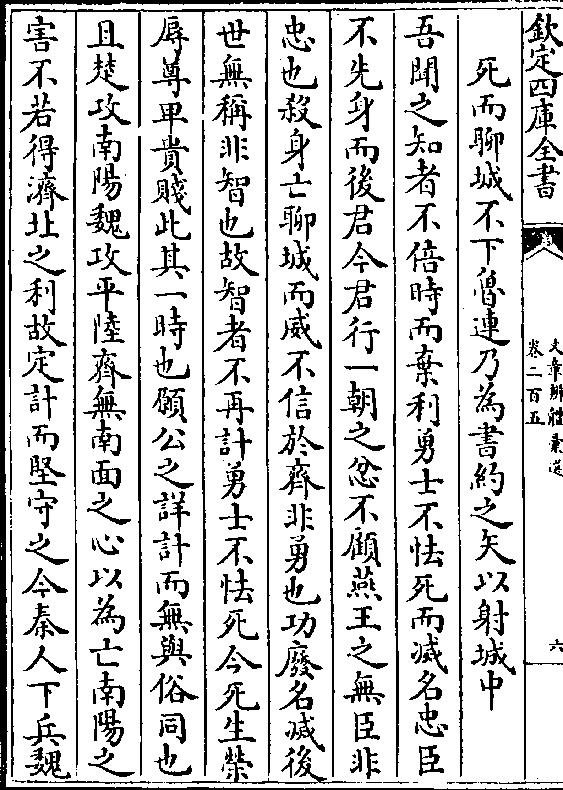 欽定四庫全書
文章辨體彙選
卷二百五
六
死而聊城不下魯連乃為書約之矢以射城中
吾聞之知者不倍時而棄利勇士不怯死而滅名忠臣
不先身而後君今君行一朝之忿不顧燕王之無臣非
忠也殺身亡聊城而威不信於齊非勇也功廢名滅後
世無稱非智也故智者不再計勇士不怯死今死生榮
辱尊卑貴賤此其一時也願公之詳計而無與俗同也
且楚攻南陽魏攻平陸齊無南面之心以為亡南陽之
害不若得濟北之利故定計而堅守之今秦人下兵魏